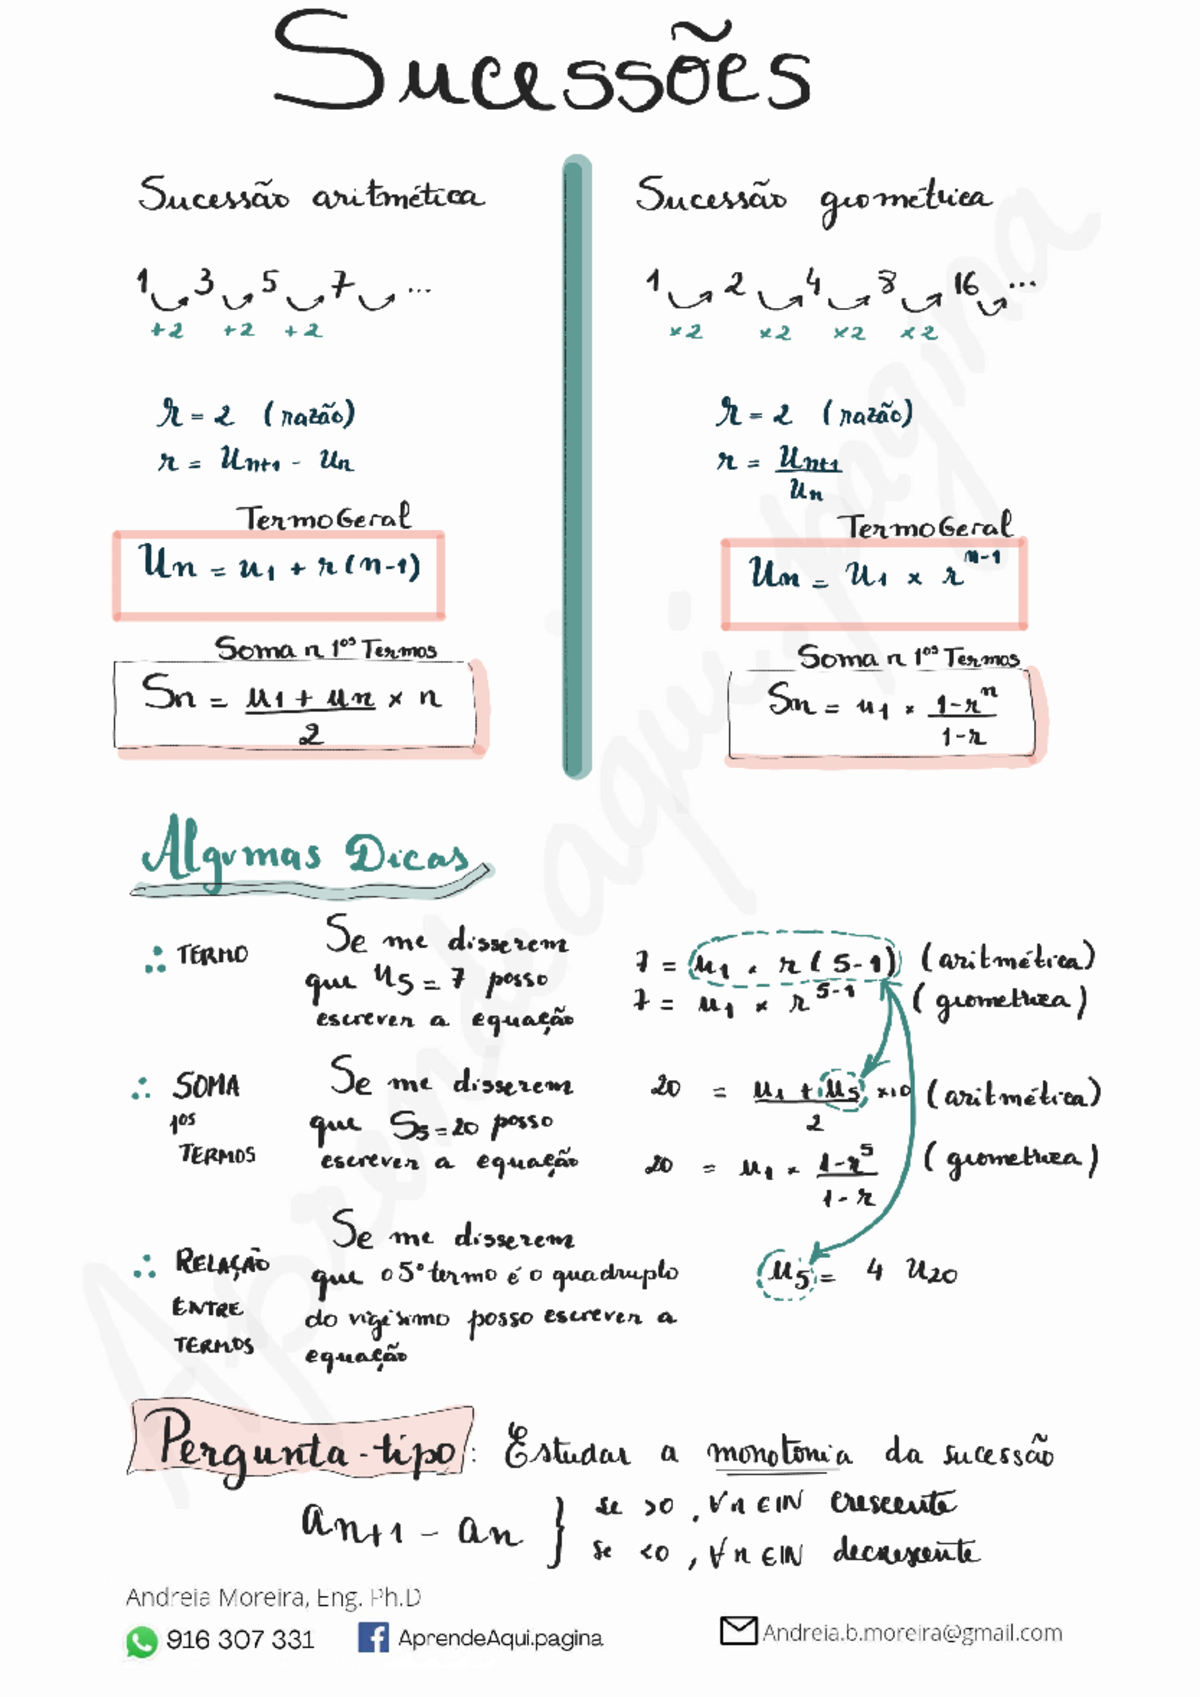 Sucessões
Sucessão aritmética
1 3 5 7 ...
+2 +2 +2
r = 2 (razão)
r = Un+1 - Un
Termo Geral
Un = u1 + r(n-1)
Soma n 1ºs Termos
Sn = u1 + un × n
2
Sucessão geométrica
1 2 4 8 16 ...
×2 ×2 ×2 ×2
r = 2 (razão)
r = Un+1
Un
Termo Geral
Un = U1 × r^n-1
Soma n 1ºs Termos
Sn = u1 × 1-r^n
1-r
Algumas Dicas
∴ TERMO
Se me disserem
que U5 = 7 posso
escrever a equação
7 = u1 . r(5-1) (aritmética)
7 = u1 × r^5-1 (geometrica)
∴ SOMA
1ºs
TERMOS
Se me disserem
que S5 = 20 posso
escrever a equação
20 = u1 + u5 ×10 (aritmética)
2
20 = u1 × 1-r^5 (geometrica)
1-r
∴ RELAÇÃO
ENTRE
TERMOS
Se me disserem
que o 5º termo é o quadruplo
do vigésimo posso escrever a
equação
u5 = 4 u20
Pergunta-tipo : Estudar a monotonia da sucessão
an+1 - an } se >0, ∀n∈IN crescente
se <0, ∀n∈IN decrescente
Andreia Moreira, Eng. Ph.D
916 307 331 AprendeAqui.pagina Andreia.b.moreira@gmail.com
Aprendeaqui.pagina